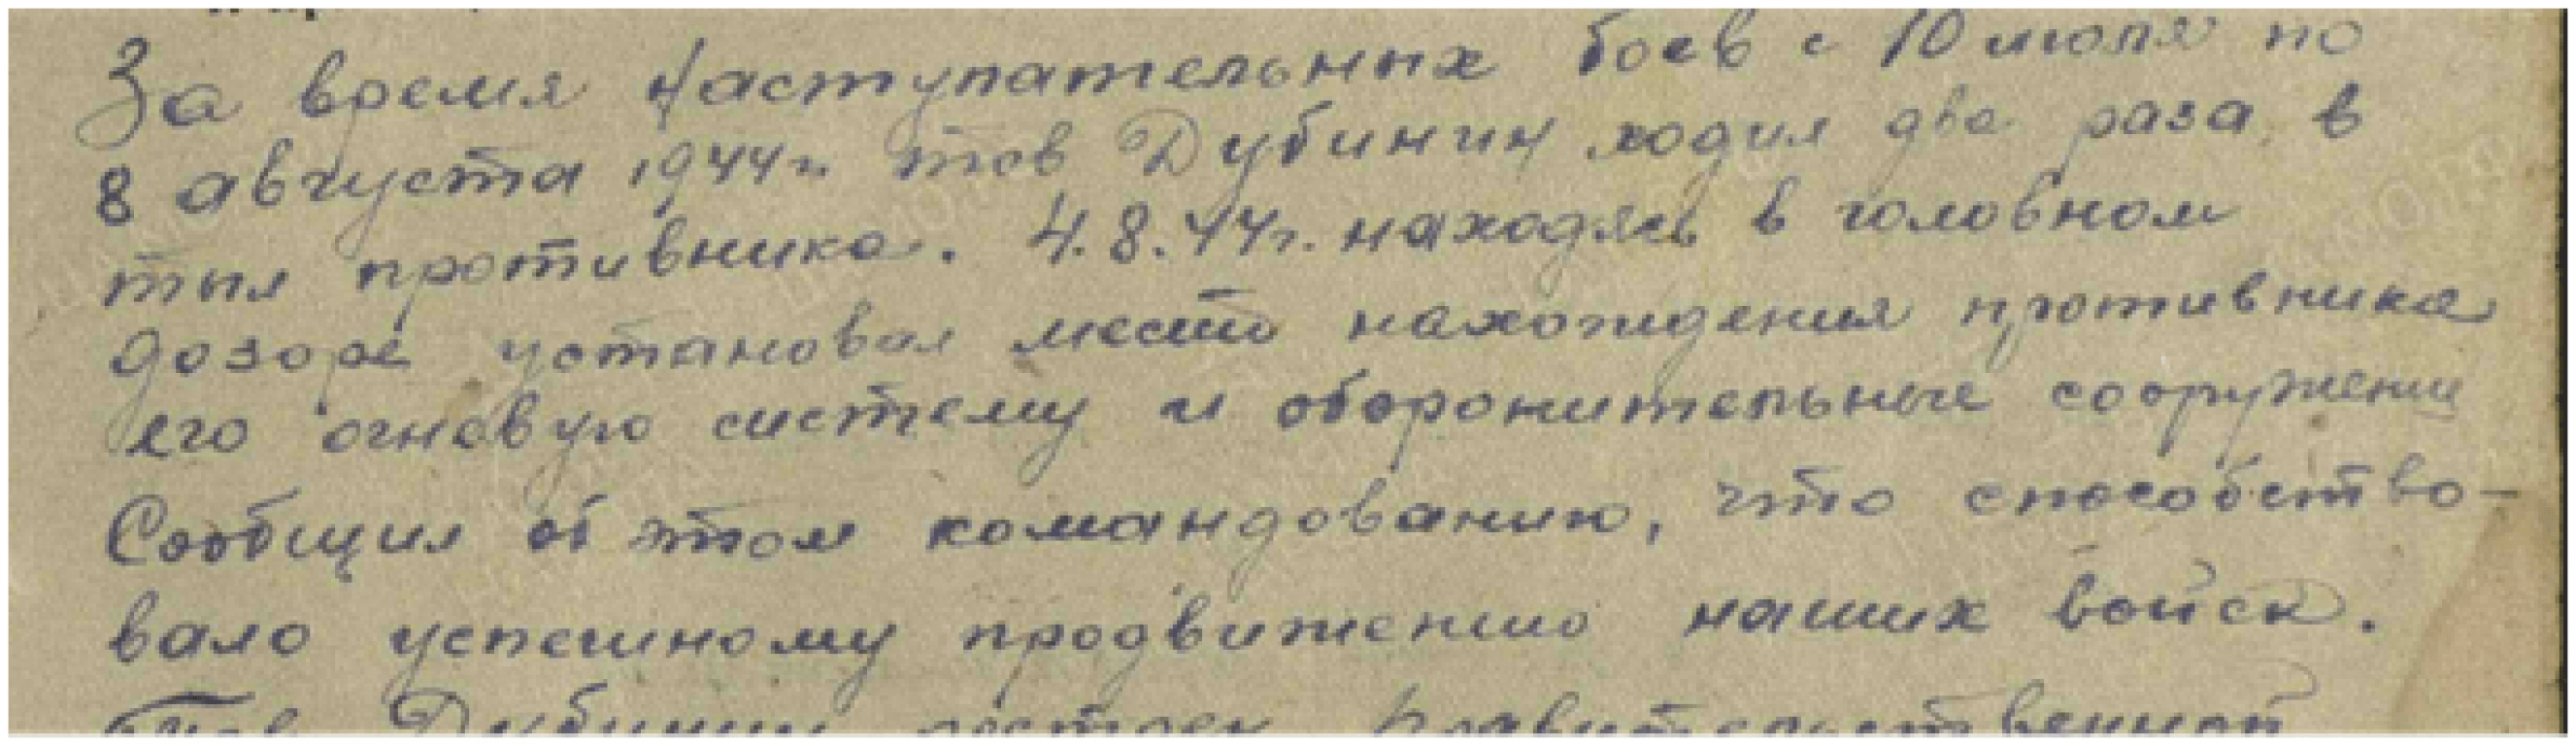 За время Наступательных боев с 10 июля по
8 августа 1944 г. тов Дубинин ходил два раза в
тыл противника. 4.8.44г. находясь в головном
дозоре установил место нахождения противника
его огневую систему и оборонительные сооружени
Сообщил об этом командованию, что способство-
вало успешному продвижению наших войск.
Тов Дубинин достоен Правительственной